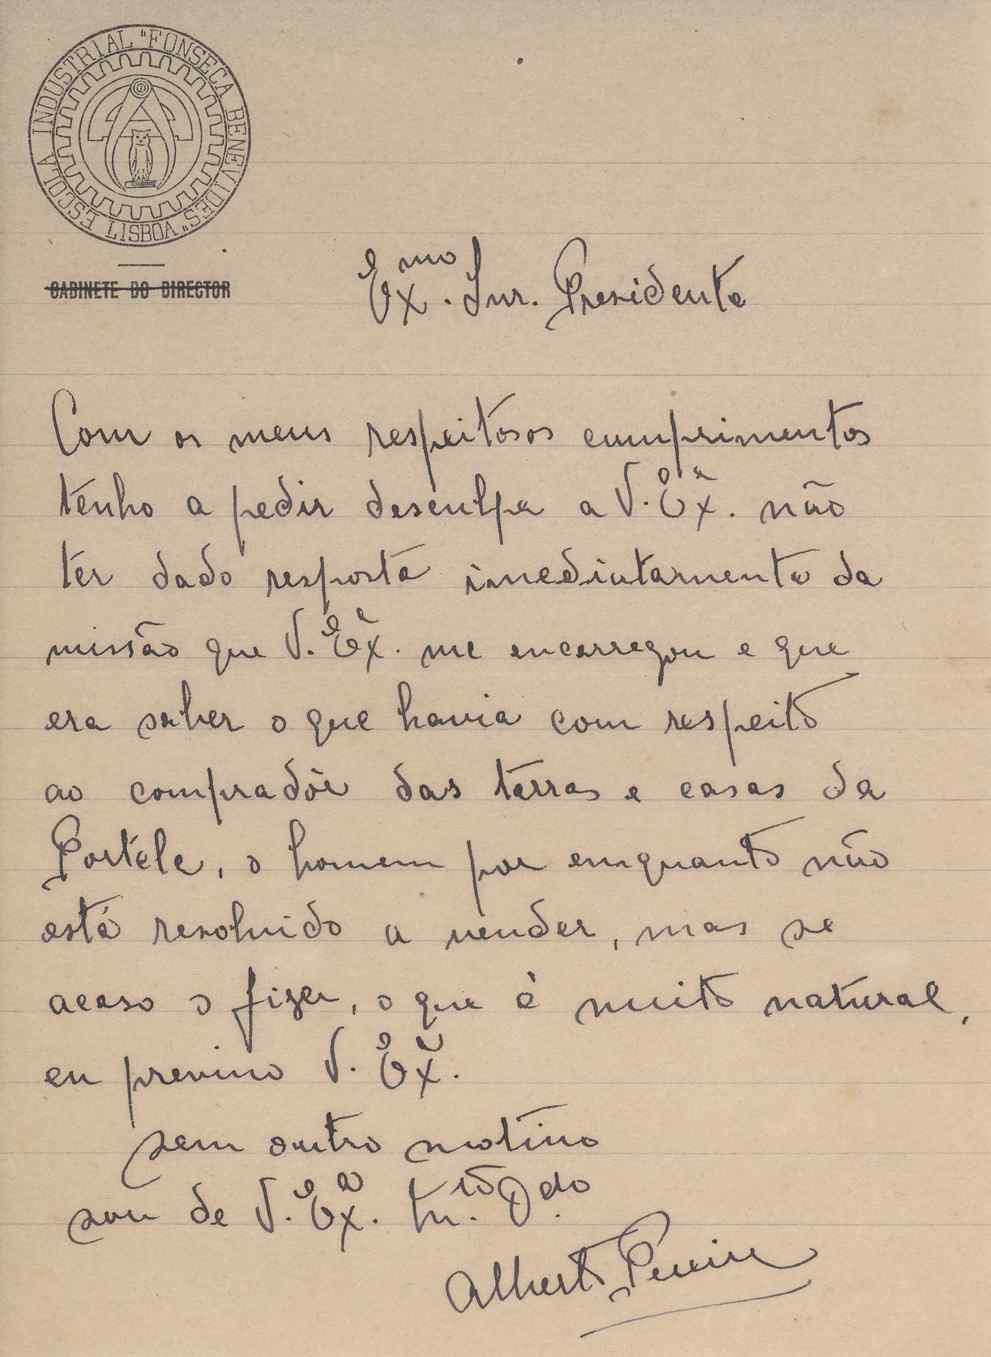 ESCOLA INDUSTRIAL "FONSECA BENEVIDES" LISBOA
GABINETE DO DIRECTOR
Exmo. Snr. Presidente
Com os meus respeitosos cumprimentos
tenho a pedir desculpa a V. Exª. não
ter dado resposta imediatamente da
missão que V. Exª. me encarregou e que
era saber o que havia com respeito
ao compradôr das terras e casas da
Portela, o homem por emquanto não
está resolvido a vender, mas se
acaso o fizer, o que é muito natural,
eu previno V. Exª.
Sem outro motivo
sou de V. Exª. Mtº. Odo
Alberto Pereira